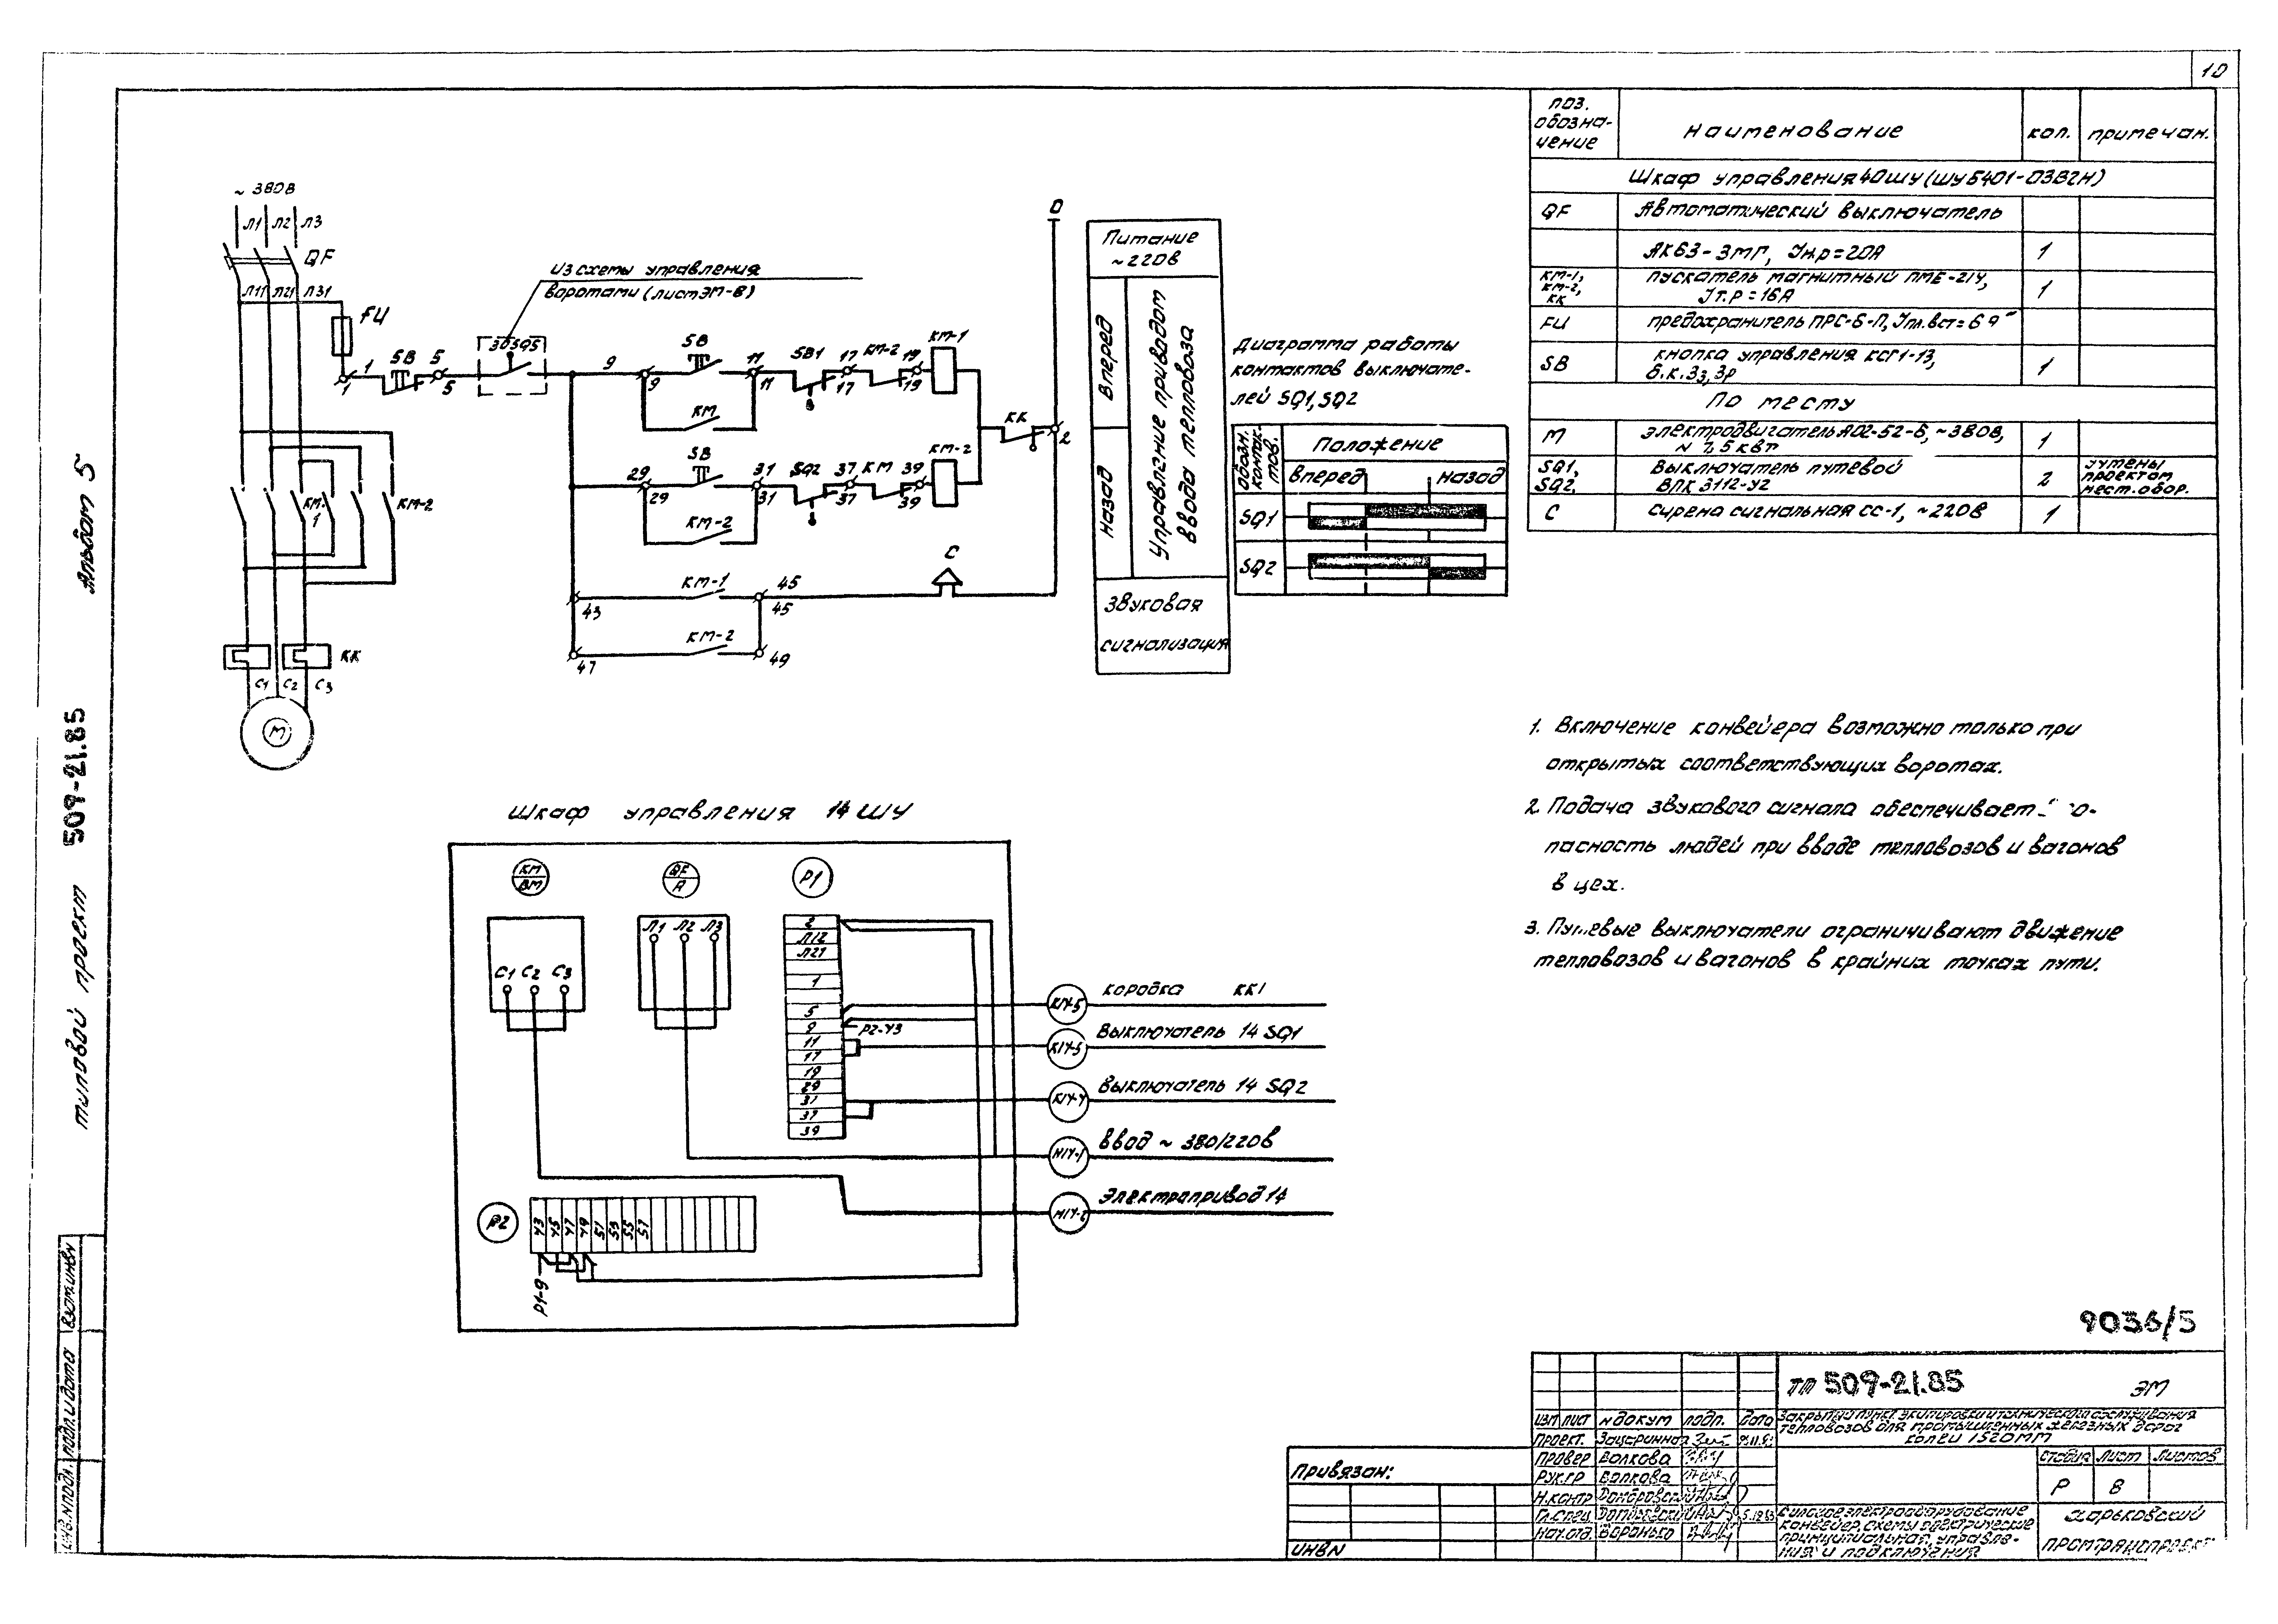 10
~ 380В
Л1 Л2 Л3
QF
Л11 Л21 Л31
FU
Из схемы управления
воротами (лист ЭМ-8)
1 SB 5 30SQ5 9 SB 11 SB1 17 КМ-2 19 КМ-1
1 5 9 11 17 19
КМ
КК
0
2
29 SB 31 SQ2 37 КМ 39 КМ-2
29 31 37 39
КМ-2
КМ-1
КМ-2
43 КМ-1 45
45
С
47 КМ-2 49
КК
С1 С2 С3
М
Питание
~220В
Вперед
Назад
Управление приводом
ввода тепловоза
Звуковая
сигнализация
Диаграмма работы
контактов выключате-
лей SQ1, SQ2
Обозн. контак-тов.
Положение
Вперед назад
SQ1
SQ2
Поз. обозна-чение
Наименование
кол.
примечан.
Шкаф управления 40ШУ (ШУ5401-03В2Н)
QF Автоматический выключатель
АК63-3МГ, Iн.р=20А 1
КМ-1, КМ-2, КК пускатель магнитный ПМЕ-214,
Iт.р=16А 1
FU предохранитель ПРС-6-П, Iпл.вст=6А
SB кнопка управления КСГ1-13,
б.к. 3з, 3р 1
По месту
М электродвигатель АО2-52-6, ~380В,
N 7,5 кВт 1
SQ1, SQ2. Выключатель путевой
ВПК 3112-У2 2 учтены проектом мест. обор.
С Сирена сигнальная СС-1, ~220В 1
1. Включение конвейера возможно только при
открытых соответствующих воротах.
2. Подача звукового сигнала обеспечивает
пасность людей при вводе тепловозов и вагонов
в цех.
3. Путевые выключатели ограничивают движение
тепловозов и вагонов в крайних точках пути.
Шкаф управления 14 ШУ
КМ
ВМ
QF
А
Р1
С1 С2 С3
Л1 Л2 Л3
2
Л12
Л21
1
5
9 Р2-43
11
17
19
29
31
37
39
К14-5 коробка КК1
К14-3 Выключатель 14 SQ1
К14-4 Выключатель 14 SQ2
Н14-1 Ввод ~ 380/220В
Н14-2 Электропривод 14
Р2
43 45 47 49 51 53 55 57
Р1-9
Альбом 5
типовой проект 509-21.85
Инв.№подл. Подп. и дата Взам.инв№
9036/5
ТП 509-21.85 ЭМ
Изм Лист №докум подп. Дата
Закрытый пункт экипировки и технического обслуживания
тепловозов для промышленных железных дорог
колеи 1520мм
Проект.
Провер Волкова
Рук.гр Волкова
Н.контр Домбровский
Гл.спец Домбровский
Нач.отд. Воронько
Стадия Лист Листов
Р 8
Силовое электрооборудование
конвейер. схемы электрические
принципиальная, управле-
ния и подключения
Харьковский
Промтранспроект
Привязан:
ИНВ№